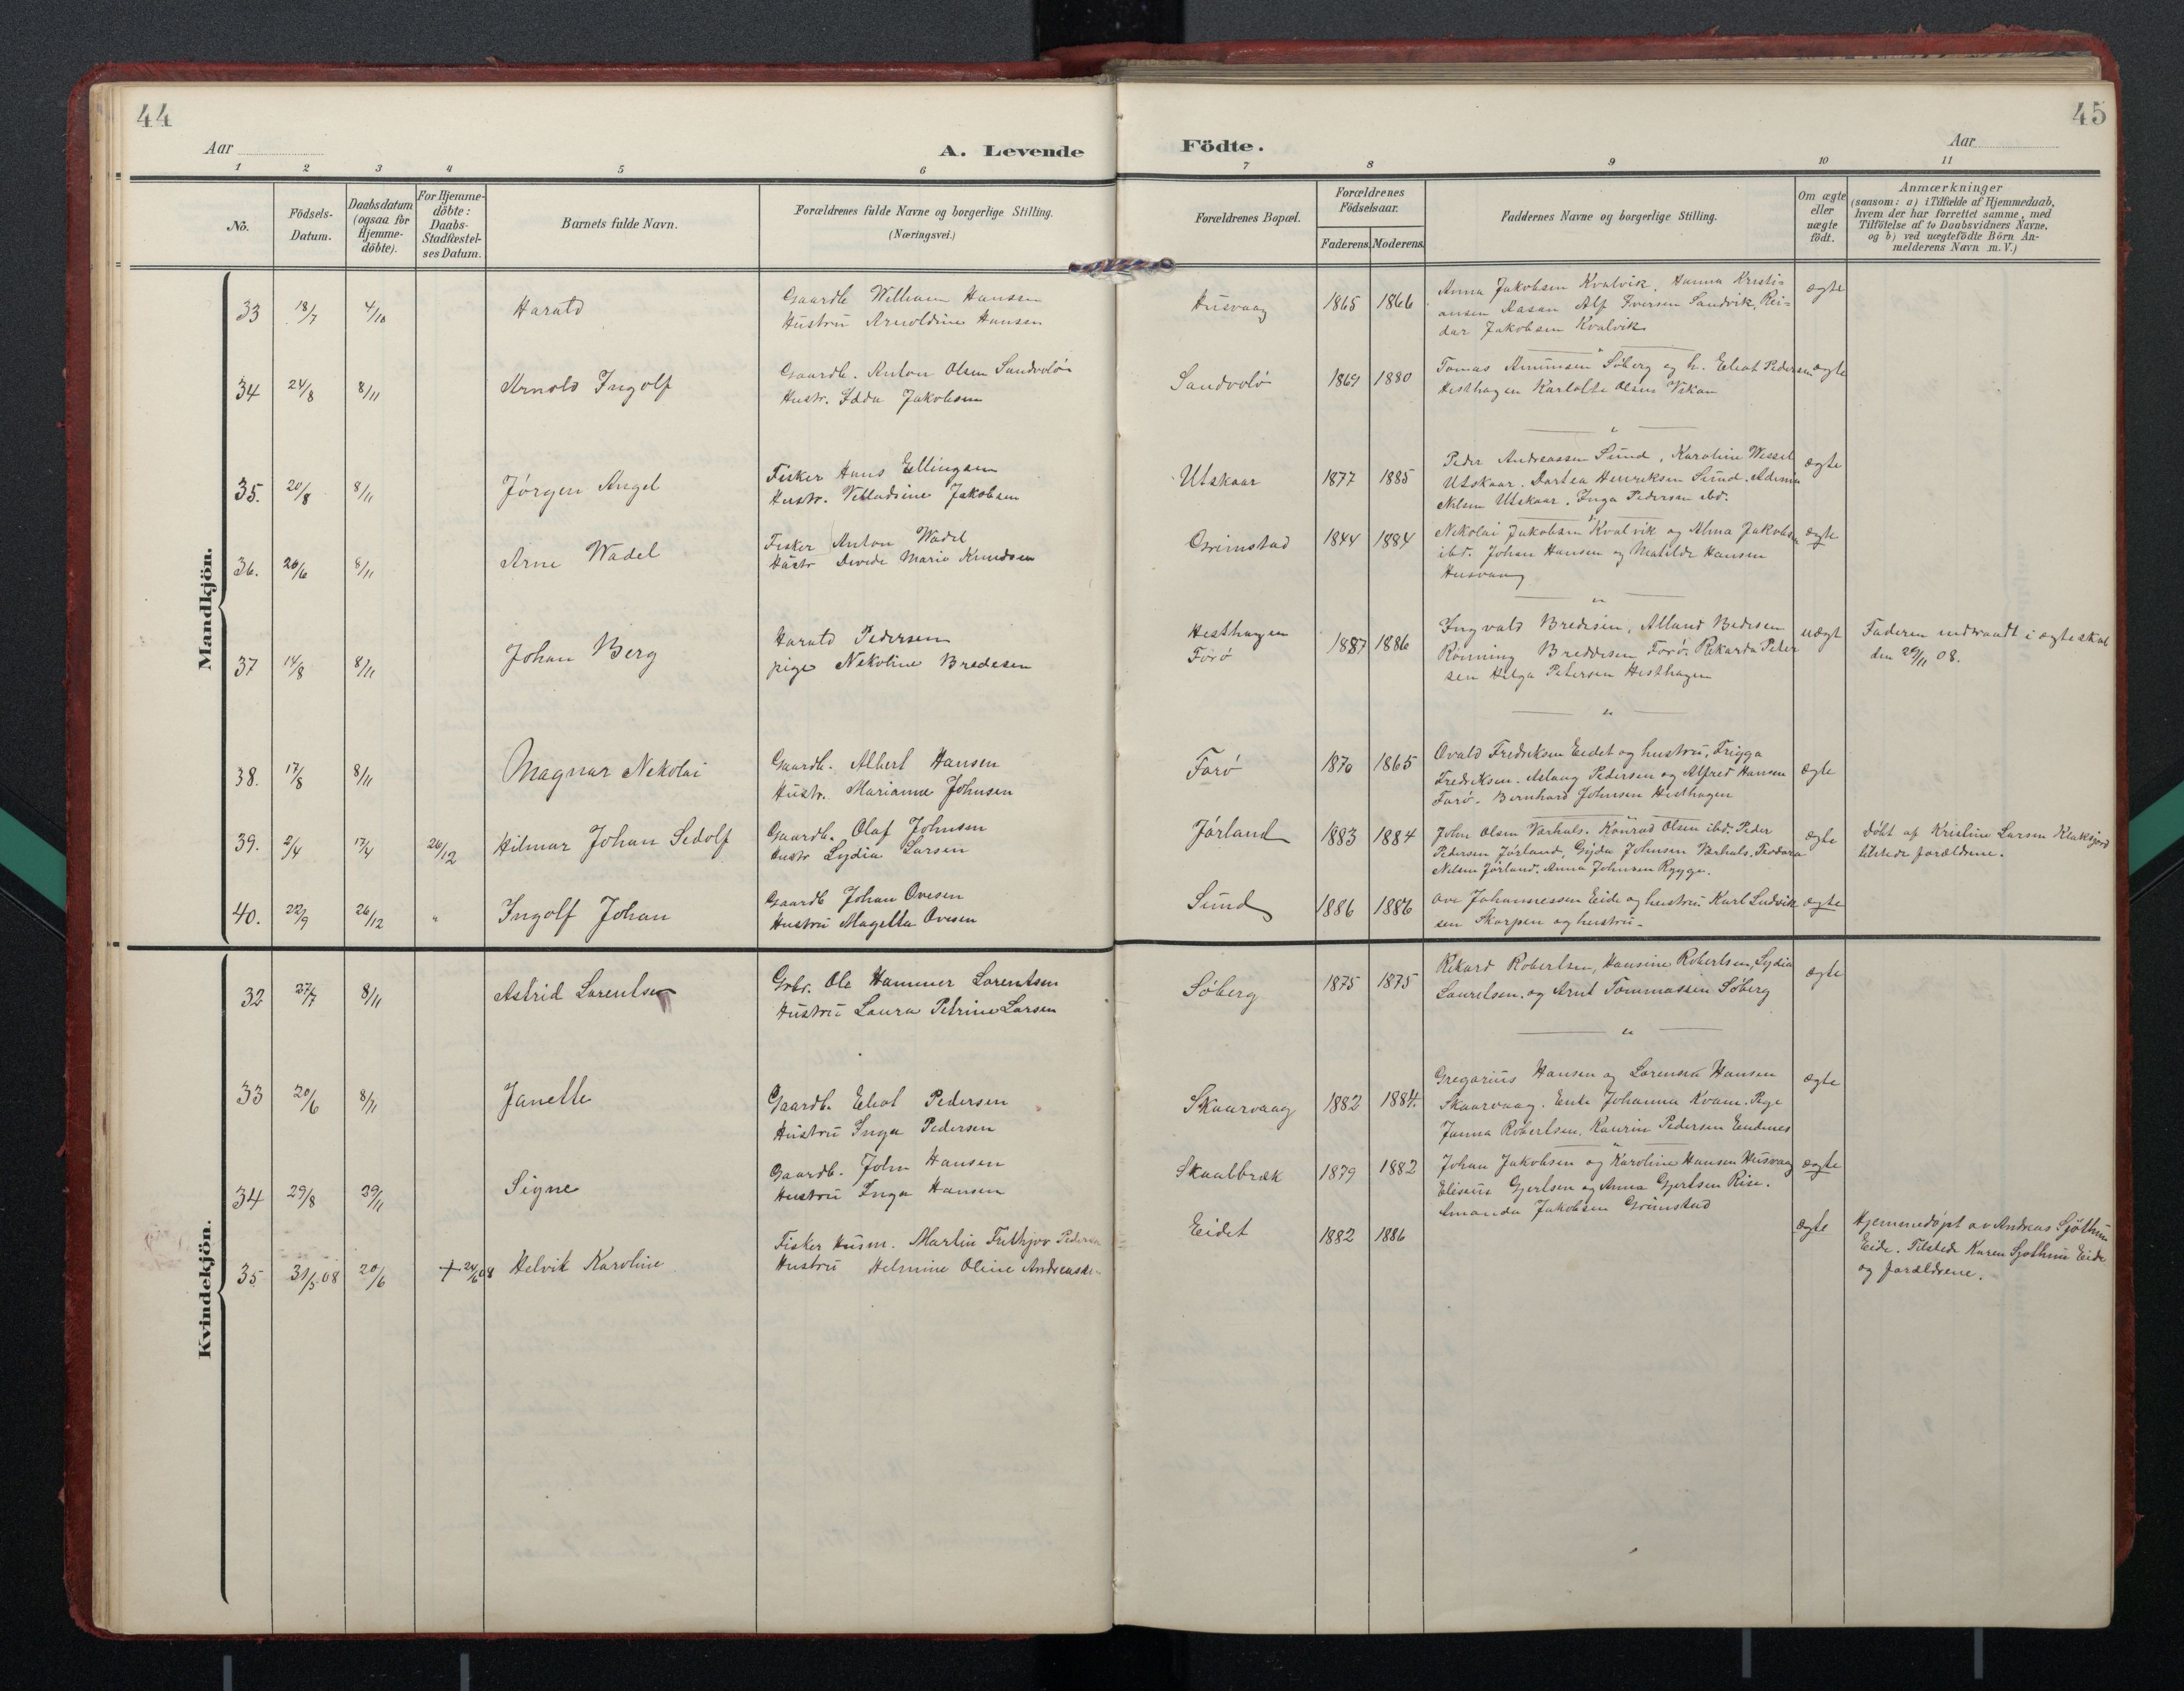 44
45
Aar
A. Levende
Födte.
Aar
1 2 3 4 5 6 7 8 9 10 11
No.
Födsels-
Datum.
Daabsdatum
(ogsaa for
Hjemme-
döbte).
For Hjemme-
döbte:
Daabs-
Stadfæstel-
ses Datum.
Barnets fulde Navn.
Forældrenes fulde Navne og borgerlige Stilling.
(Næringsvei.)
Forældrenes Bopæl.
Forældrenes
Födselsaar.
Faderens. Moderens.
Faddernes Navne og borgerlige Stilling.
Om ægte
eller
uægte
födt.
Anmærkninger
(saasom: a) i Tilfælde af Hjemmedaab,
hvem der har forrettet samme, med
Tilföielse af to Daabsvidners Navne,
og b) ved uægtefödte Börn An-
melderens Navn m. V.)
Mandkjön.
33 18/7 4/10 Harald
Gaardb. William Hansen
Hustru Arnoldine Hansen
Husvaag 1865 1866
Anna Jakobsen Kvalvik, Hanna Kristi-
ansen Aasan Alf Iversen Sandvik, Rei-
dar Jakobsen Kvalvik
ægte
34 24/8 8/11 Arnold Ingolf
Gaardb. Anton Olsen Sandvolö
Hustr. Edda Jakobsen
Sandvolö 1869 1880
Tomas Amunsen Söberg og h. Eliot Pedersen
Hesthagen Karlotte Olsen Vikan
ægte
35. 20/8 8/11 Jörgen Angel
Fisker Hans Ellingsen
Hustr. Villadsine Jakobsen
Utskaar 1877 1885
Peder Andreassen Sund, Karoline Wessel
Utskaar. Dortea Henriksen Sund. Adima
Nilsen Utskaar. Inga Pedersen ibd.
ægte
36. 26/6 8/11 Arne Wadel
Fisker Anton Wadel
Hustr Devede Marie Knudsen
Grimstad 1844 1884
Nikolai Jakobsen Kvalvik og Alma Jakobsen
ibd. Johan Hansen og Matilde Hansen
Husvaag
ægte
37 14/8 8/11 Johan Berg
Harald Pedersen
pige Nikoline Bredesen
Hesthagen
Forö
1887 1886
Ingvald Bredesen, Alland Bedesen
Rönning Breddesen Forö. Rikarda Peter
sen Helga Petersen Hesthagen
uægt
Faderen indtraadt i ægteskab
den 29/11 08.
38. 17/8 8/11 Magnar Nekolai
Gaardb. Albert Hansen
Hustr. Marianne Johnsen
Forö 1870 1865
Ovald Fredriksen Eidet og hustru, Frigga
Fredriksen. Aslaug Pedersen og Alfred Hansen
Forö. Bernhard Johnsen Hesthagen
ægte
39. 2/4 17/4 26/12 Hilmar Johan Sedolf
Gaardb. Olaf Johnsen
Hustr Lydia Larsen
Jörland 1883 1884
John Olsen Varhals. Konrad Olsen ibd. Peder
Pedersen Jörland, Gyda Johnsen Varhals. Teodora
Nilsen Jörland. Anna Johnsen Rygge.
ægte
döbt af Kristine Larsen Klaksjord
tilstede forældrene.
40. 22/9 26/12 " Ingolf Johan
Gaardb Johan Ovesen
Hustru Magella Ovesen
Sund 1886 1886
Ove Johannessen Eide og hustru Karl Ludvik
sen Skarpen og hustru.
ægte
Kvindekjön.
32 27/7 8/11 Astrid Lorentsen
Grbr. Ole Hammer Lorentsen
Hustru Laura Petrine Larsen
Söberg 1875 1875
Rikard Robertsen, Hansine Robertsen, Lydia
Lauretsen. og Arnt Tommassen Söberg
ægte
33 20/6 8/11 Janette
Gaardb. Eliot Pedersen
Hustru Inga Pedersen
Skaarvaag 1882 1884.
Gregarius Hansen og Lorensa Hansen
Skaarvaag. Enke Johanna Kvam. Pige
Janna Robertsen. Kaurin Pedersen Eindnes
ægte
34 29/8 29/11 Signe
Gaardb. John Hansen
Hustru Inga Hansen
Skaalbræk 1879 1882
Johan Jakobsen og Karoline Hansen Husvaag
Eliseus Gjertsen og Anna Gjertsen Rise.
Amanda Jakobsen Grimstad
ægte
35. 31/5 08 20/6 + 24/6 08 Helvik Karoline
Fisker Husm. Martin Frithjov Pedersen
Hustru Helmine Oline
Eidet 1882 1886
ægte
Hjemmedöpt av Andreas Sjöthun
Eide. Tilstede Karen Sjothun Eide
og forældrene.